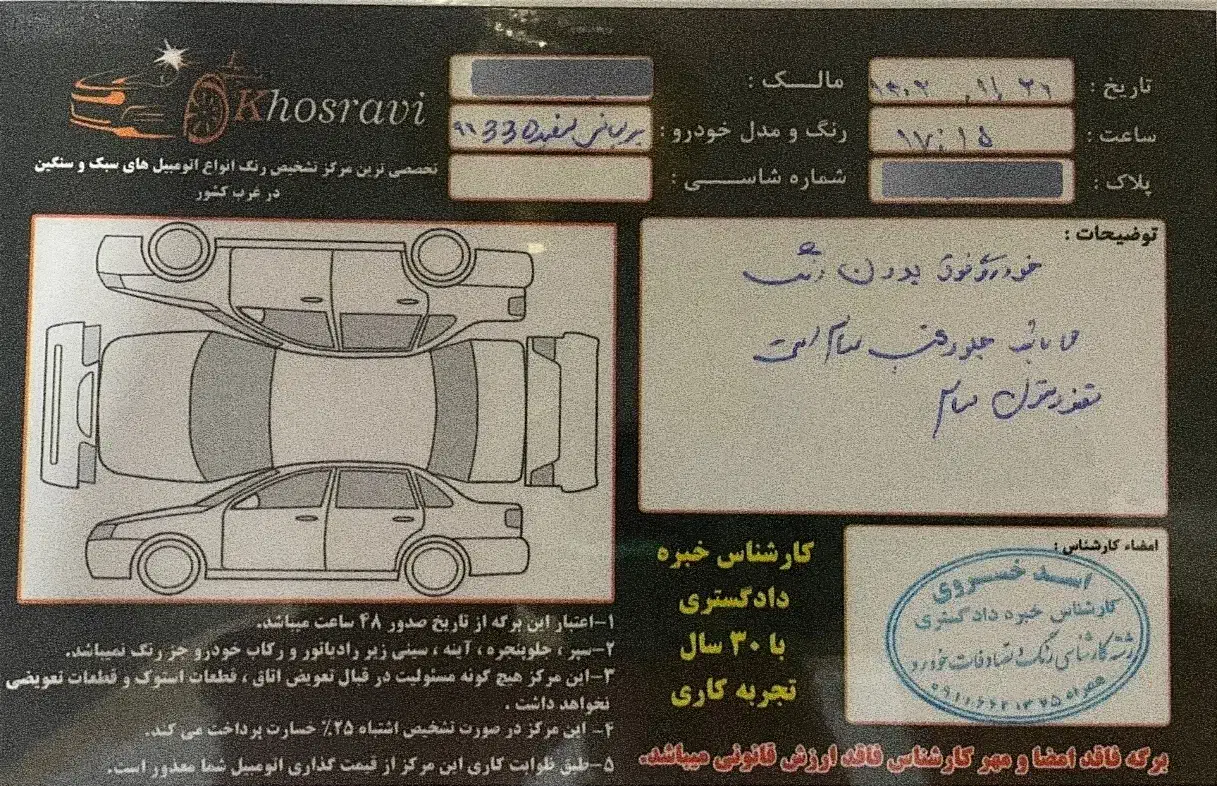 Khosravi
تخصصی ترین مرکز تشخیص رنگ انواع اتومبیل های سبک و سنگین
در غرب کشور
تاریخ : ۱۴۰۲ ,۱۱, ۲۶
ساعت : ۱۷:۱۵
پلاک :
مالـــک :
رنگ و مدل خودرو : سفید ۹۹
شماره شاســـی :
توضیحات :
خودرو فوق بدون رنگ
جلو عقب سالم است
سالم
امضاء کارشناس :
اسد خسروی
کارشناس خبره دادگستری
رشته کارشناسی رنگ و تصادفات خودرو
همراه
کارشناس خبره
دادگستری
با ۳۰ سال
تجربه کاری
۱-اعتبار این برگه از تاریخ صدور ۴۸ ساعت میباشد.
۲-سپر ، جلوپنجره ، آینه ، سینی زیر رادیاتور و رکاب خودرو جز رنگ نمیباشد.
۳-این مرکز هیچ گونه مسئولیت در قبال تعویض اتاق ، قطعات استوک و قطعات تعویضی
نخواهد داشت .
۴- این مرکز در صورت تشخیص اشتباه ۲۵٪ خسارت پرداخت می کند.
۵-طبق ظرایت کاری این مرکز از قیمت گذاری اتومبیل شما معذور است.
برگه فاقد امضا و مهر کارشناس فاقد ارزش قانونی میباشد.